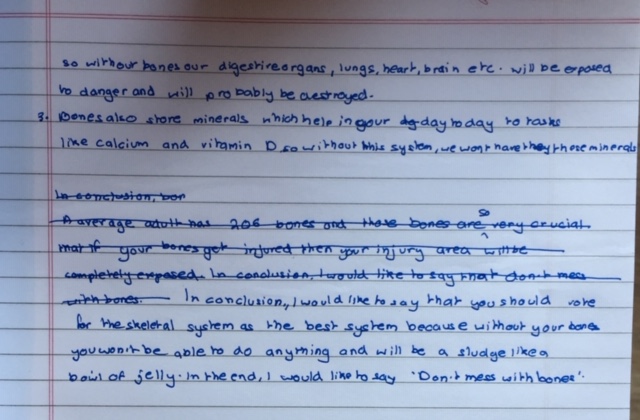 so without bones our digestive organs, lungs, heart, brain etc. will be exposed
to danger and will probably be destroyed.
3. Bones also store minerals which help in your day to day to tasks
like calcium and vitamin D so without this system, we wont have they these minerals
In conclusion, bon
A average adult has 206 bones and those bones are so very crucial
that if your bones get injured then your injury area will be
completely exposed. In conclusion, I would like to say that don't mess
with bones. In conclusion, I would like to say that you should vote
for the skeletal system as the best system because without your bones
you won't be able to do anything and will be a sludge like a
bowl of jelly. In the end, I would like to say "Don't mess with bones".